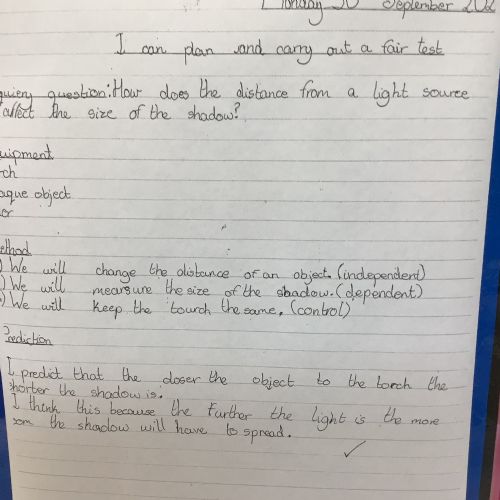 Monday 30 September 202
I can plan and carry out a fair test
quiery question: How does the distance from a light source
affect the size of the shadow?
uipment
rch
aque object
er
ethod
) We will change the distance of an object. (independent)
) We will mearsure the size of the shadow. (dependent)
) We will keep the tourch the same. (control)
Prediction
I predict that the closer the object to the torch the
shorter the shadow is.
I think this because the further the light is the more
the shadow will have to spread.